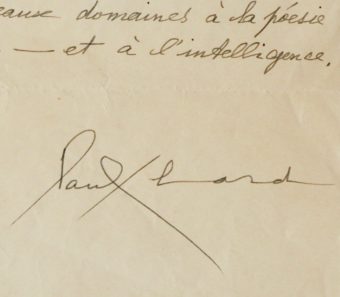 eaux domaines à la poésie
— et à l'intelligence.
Paul Eluard